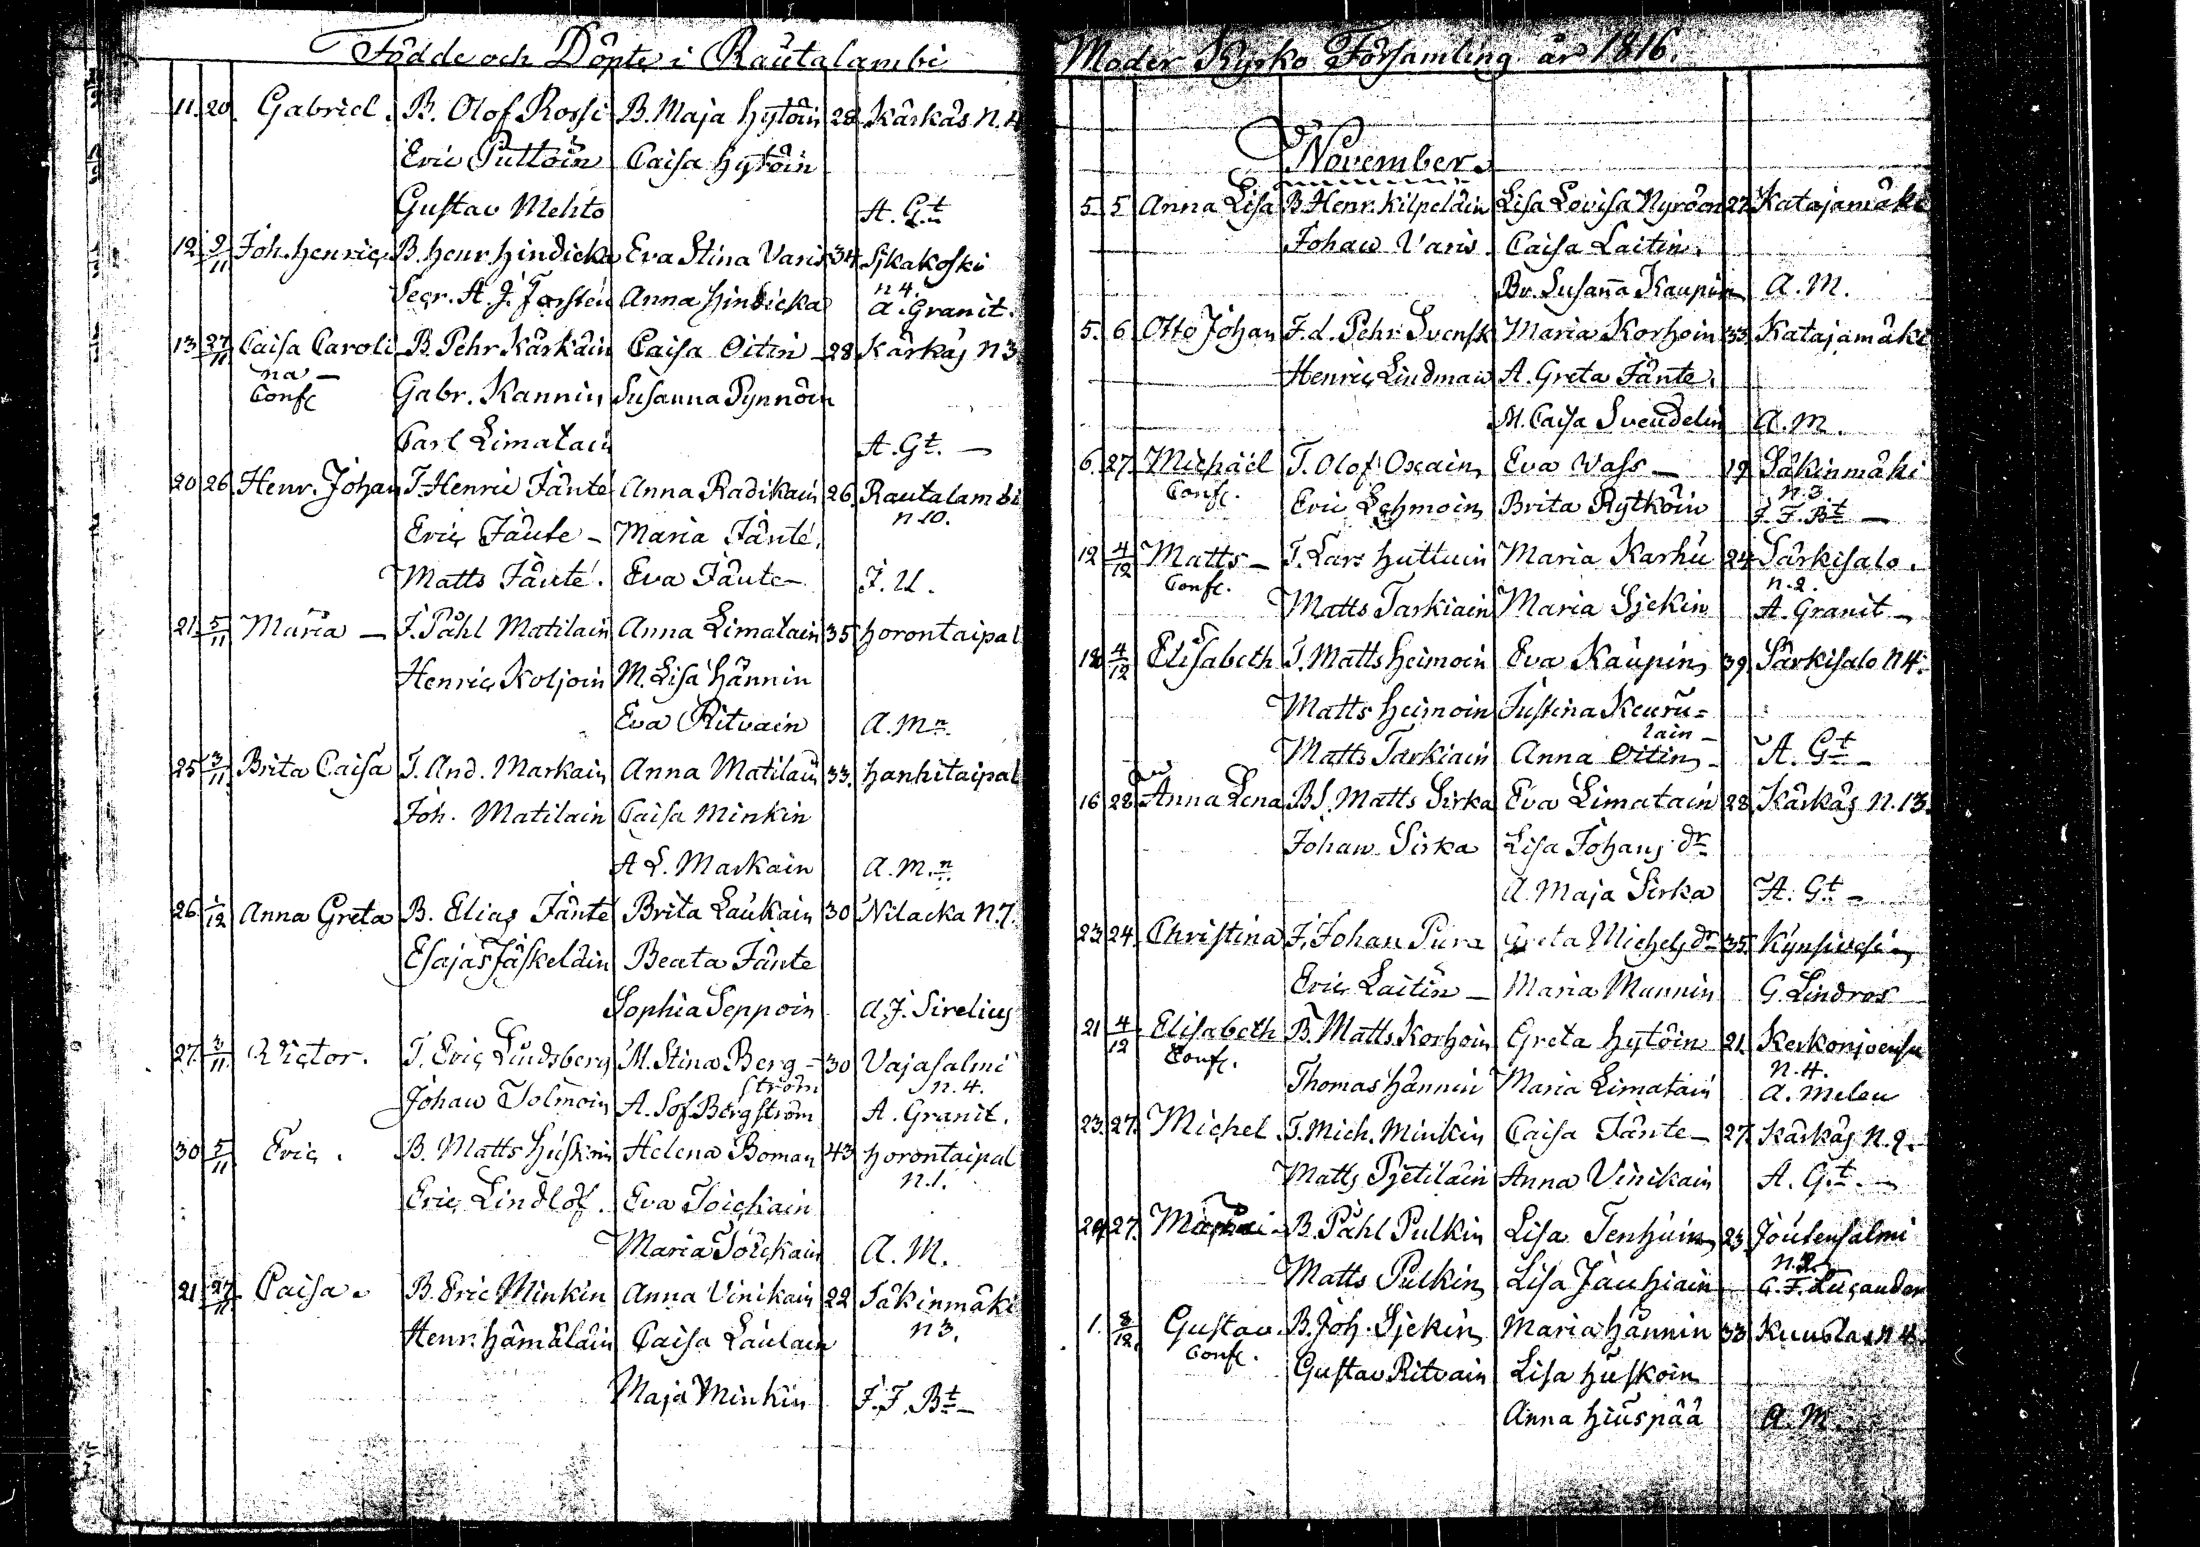 Födde och Döpte i Rautalambi
11. 20. Gabriel. B. Olof Rossi B. Maja Hytöin 28 Kärkäs N. 4
Eric Puttoin Caisa Hytöin
Gustav Mehto A. Gt
12 9/11 Joh. Henric B. Henr. Hindicka Eva Stina Varis 34 Sjkakoski
n 4.
Secr. A. J. Forstén Anna Hindicka A. Granit.
13 27/11 Caisa Caroli B. Pehr Kärkäin Caisa Oitin 28 Kärkäs N 3
na —
Conf. Gabr. Kannin Susanna Pynnöin
Carl Limatain A. Gt. —
20 26 Henr. Johan T. Henric Jänte Anna Radikain 26 Rautalambi
n 10.
Eric Jänte — Maria Jänte.
Matts Jänte. Eva Jänte — J. U.
21 5/11 Maria — J. Påhl Matilain Anna Limatain 35 Horontaipal
Henric Koljoin M. Lisa Hännin
Eva Ritvain A. Mn.
25 3/11 Brita Caisa T. And. Markain Anna Matilain 33. Hanhitaipal
Joh. Matilain Caisa Minkin
A L. Markain A. M. n.
26 1/12 Anna Greta B. Elias Jänte Brita Laukain 30 Nilacka N. 7.
Esajas Jäskeläin Beata Jänte
Sophia Seppoin A. J. Sirelius
27. 3/11 Victor. T. Eric Lindsberg M. Stina Berg= 30 Vajasalmi
ström n. 4.
Johan Tolmoin A. Sof. Bergström A. Granit.
30 5/11 Eric. B. Matts Huskoin Helena Boman 43 Horontaipal
n. 1.
Eric Lindlöf. Eva Toickain
Maria Toickain A. M.
21 27/11 Caisa. B. Eric Minkin Anna Vinikain 22 Säkinmäki
n 3.
Henr. Hämäläin Caisa Laulain
Maja Minkin J. F. Bt —
Moder Kyrko Församling år 1816.
November.
5. 5 Anna Lisa B. Henr. Kilpeläin Lisa Lovisa Nyroon 27. Katajamäki
Johan Varis. Caisa Laitin.
Bv. Susanna Kaupin A. M.
5. 6 Otto Johan F. d. Pehr Svensk Maria Korhoin 33. Katajamäki
Henric Lindman A. Greta Jänte.
M. Caisa Svendelin A. M.
6. 27. Michaël T. Olof Oxain Eva Vass — 19 Säkinmäki
Conf. n. 3.
Eric Lehmoin Brita Rytköin J. F. Bt —
12 4/12 Matts — T. Lars Huttuin Maria Karhu 24 Särkisalo.
Conf. n. 2.
Matts Tarkiain Maria Sjekin A. Granit —
12 4/12 Elisabeth T. Matts Heimoin Eva Kaupin 39. Särkisalo N 4.
Matts Heimoin Justina Keuru=
lain —
Matts Tarkiain Anna Oitin — A. Gt —
16 28 Anna Lena B S. Matts Sirka Eva Limatain 28 Kärkäs N. 13.
Johan Sirka Lisa Johans dr
A. Maja Sirka A. Gt —
23 24. Christina J. Johan Pura Greta Michels dr 35. Kynsivesi
Eric Laitin — Maria Munnin G. Lindros
21 4/12 Elisabeth B. Matts Korhoin Greta Hytöin 21. Kerkonjoensu
Conf. N. 4.
Thomas Hännin Maria Limatain A. Melen
23. 27. Michel. T. Mich. Minkin Caisa Jänte — 27. Kärkäs N. 2.
Matts Pjetiläin Anna Vinikain A. Gt. —
24 27. B. Påhl Pulkin Lisa Tenhuin 23 Joutensalmi
N. 2.
Matts Pulkin Lisa Jauhiain G. F. Lucander
1. 3/12. Gustav. B. Joh. Sjekin Maria Hännin 33 Kuusla N 4.
Conf. Gustav Ritvain Lisa Huskoin
Anna Hiuspää A. M.